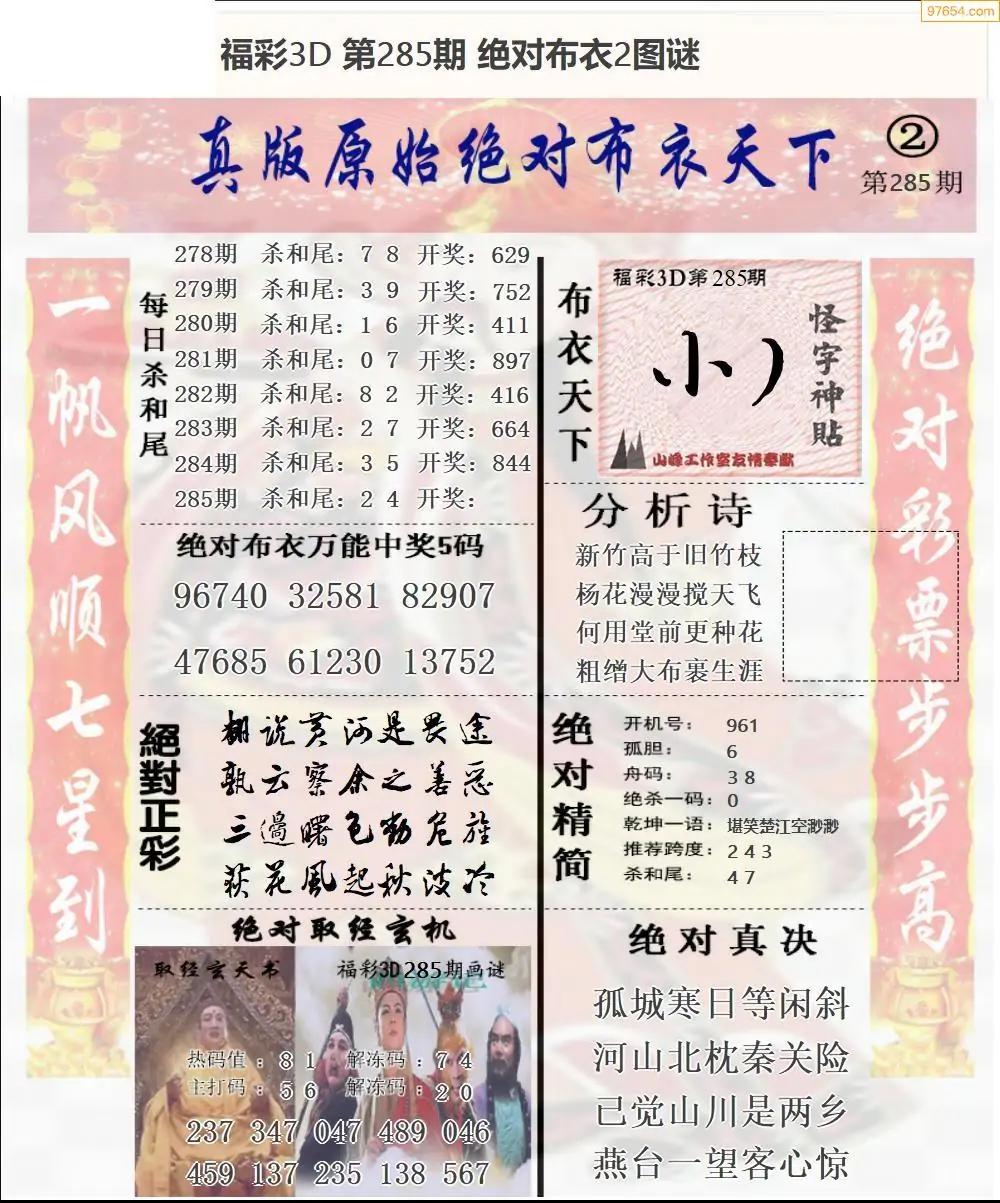 97654.com
福彩3D 第285期 绝对布衣2图谜
真版原始绝对布衣天下
②
第285期
一帆风顺七星到
每日杀和尾
278期 杀和尾：7 8 开奖：629
279期 杀和尾：3 9 开奖：752
280期 杀和尾：1 6 开奖：411
281期 杀和尾：0 7 开奖：897
282期 杀和尾：8 2 开奖：416
283期 杀和尾：2 7 开奖：664
284期 杀和尾：3 5 开奖：844
285期 杀和尾：2 4 开奖：
绝对布衣万能中奖5码
96740 32581 82907
47685 61230 13752
絕對正彩
翻说黄河是畏途
孰云察余之善恶
三過曙色勒危旌
荻花風起秋波冷
绝对取经玄机
取经玄天书
福彩3D285期画谜
热码值：8 1 解冻码：7 4
主打码：5 6 解冻码：2 0
237 347 047 489 046
459 137 235 138 567
布衣天下
福彩3D第285期
怪字神貼
小
山峰工作室友情奉献
分析诗
新竹高于旧竹枝
杨花漫漫搅天飞
何用堂前更种花
粗缯大布裹生涯
绝对精简
开机号：961
孤胆：6
舟码：3 8
绝杀一码：0
乾坤一语：堪笑楚江空渺渺
推荐跨度：2 4 3
杀和尾：4 7
绝对真决
孤城寒日等闲斜
河山北枕秦关险
已觉山川是两乡
燕台一望客心惊
绝对彩票步步高